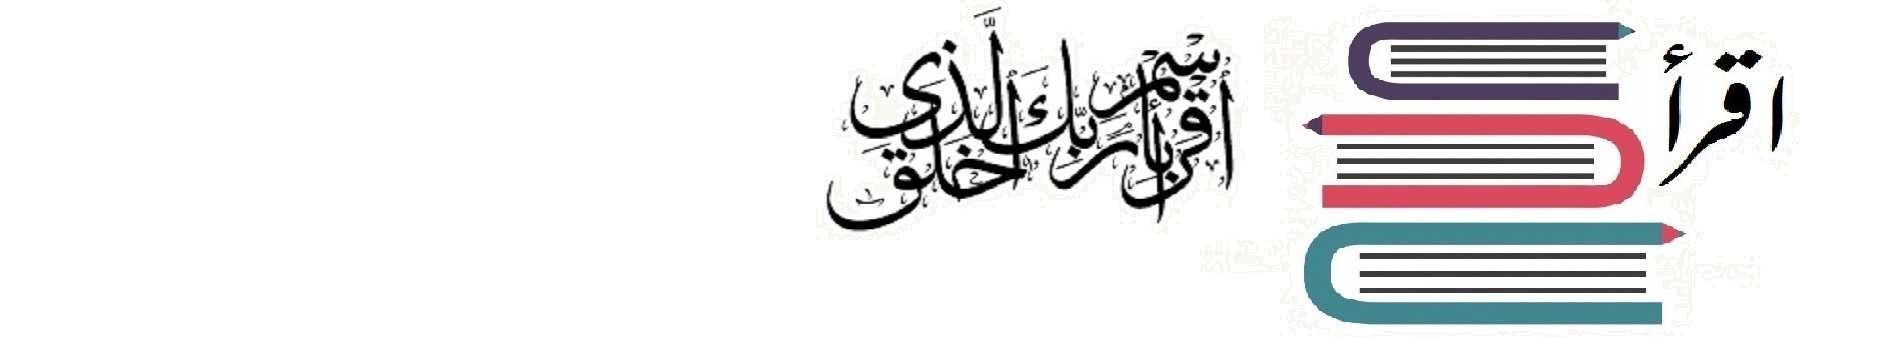 اقرأ
اقرأ باسم ربك الذي خلق